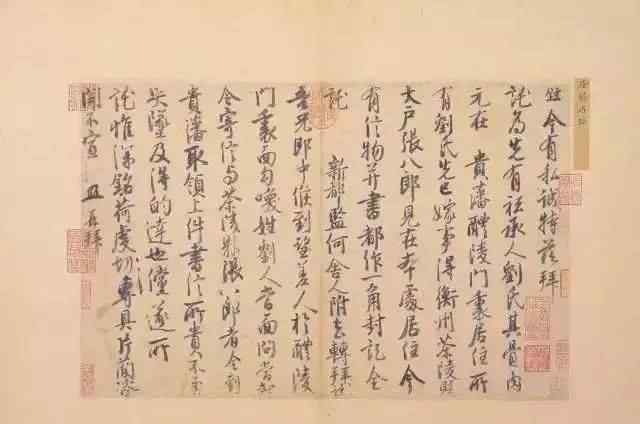 丑 今有私誠特茲拜
託為先有祗承人劉氏其骨肉
元在 貴藩醴陵門裏居住所
有劉氏先已嫁事得衡州茶陵縣
大戶張八郎見在本處居住今
有信物并書都作一角封記全
託 新都監何舍人附去轉拜託
吾兄郎中候到望差人於醴陵
門裏面勾喚姓劉人當面問當卻
令寄信與茶陵縣張八郎者令到
貴藩取領上件書信所貴不至
失墜及得的達也儻遂所
託惟深銘荷虔切專具片簡咨
聞不宣 丑再拜